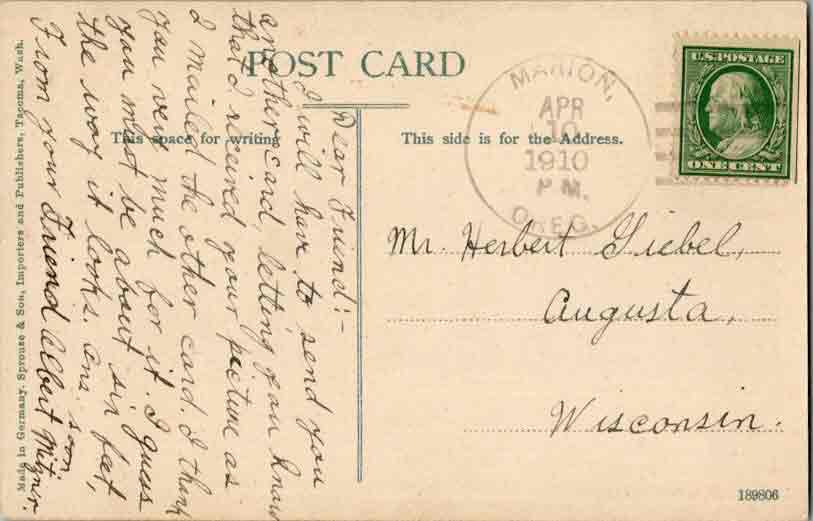 POST CARD
This space for writing
This side is for the Address.
Dear Friend:-
I will have to send you
another card, letting you know
that I received your picture as
I mailed the other card. I thank
you very much for it. I guess
you must be about six feet,
the way it looks. Ans. soon
From your Friend Albert Mitzner.
MARION,
APR
10
1910
P.M.
OREG.
U.S. POSTAGE
ONE CENT
Mr. Herbert Giebel,
Augusta,
Wisconsin.
Made in Germany. Sprouse & Son, Importers and Publishers, Tacoma, Wash.
189806